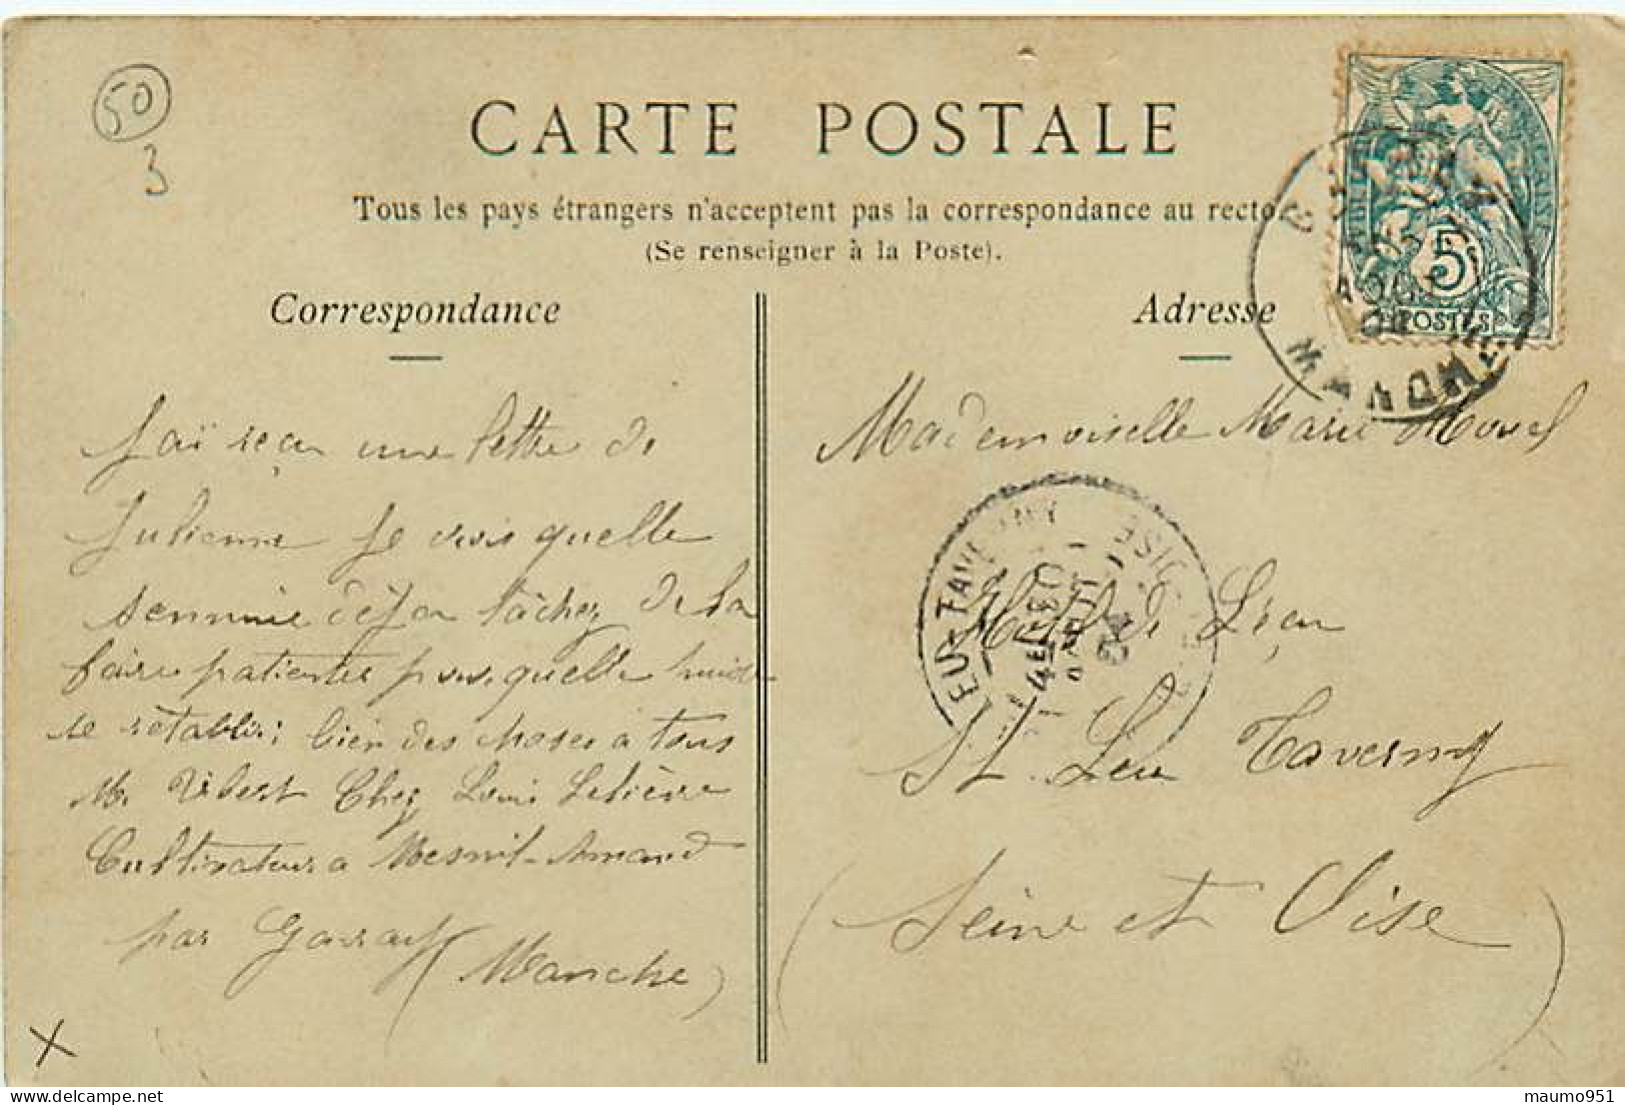 50
3
CARTE POSTALE
Tous les pays étrangers n'acceptent pas la correspondance au recto
(Se renseigner à la Poste).
Correspondance
Adresse
5c
POSTES
MANCHE
J'ai reçu une lettre de
Julienne je vois quelle
sennuie déja tâchez de la
faire patienter pour quelle puisse
se rétablir; bien des choses a tous
M. Vibert Chez Louis Lelièvre
Cultivateur a Mesnil-Amand
par Gavray (Manche)
Mademoiselle Marie Morel
Hotel de L'écu
St. Leu Taverny
(Seine et Oise)
LEU-TAVERNY
OISE
04
X
maumo951